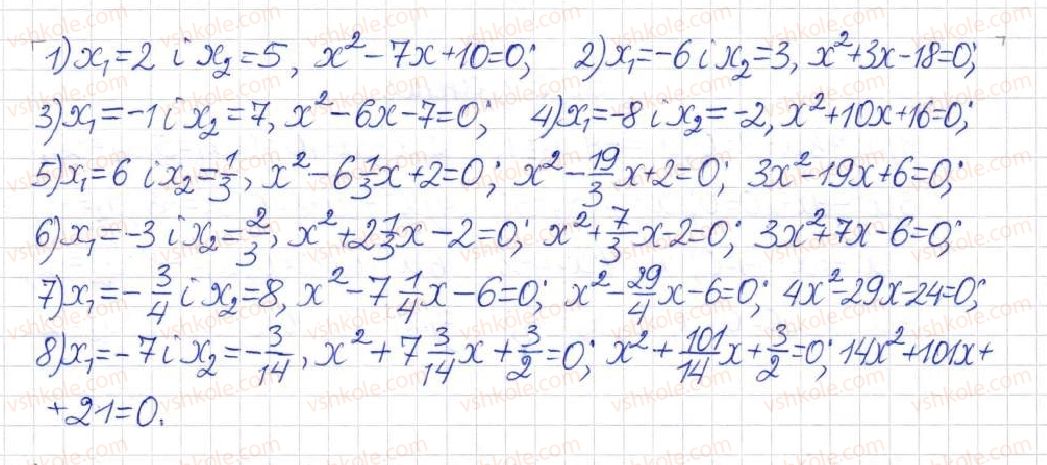 1) x₁=2 і x₂=5, x²-7x+10=0; 2) x₁=-6 і x₂=3, x²+3x-18=0;
3) x₁=-1 і x₂=7, x²-6x-7=0; 4) x₁=-8 і x₂=-2, x²+10x+16=0;
5) x₁=6 і x₂=1/3, x²-6 1/3x+2=0; x²-19/3x+2=0; 3x²-19x+6=0;
6) x₁=-3 і x₂=2/3, x²+2 1/3x-2=0; x²+7/3x-2=0; 3x²+7x-6=0;
7) x₁=-3/4 і x₂=8, x²-7 1/4x-6=0; x²-29/4x-6=0; 4x²-29x-24=0;
8) x₁=-7 і x₂=-3/14, x²+7 3/14x+3/2=0; x²+101/14x+3/2=0; 14x²+101x+
+21=0.